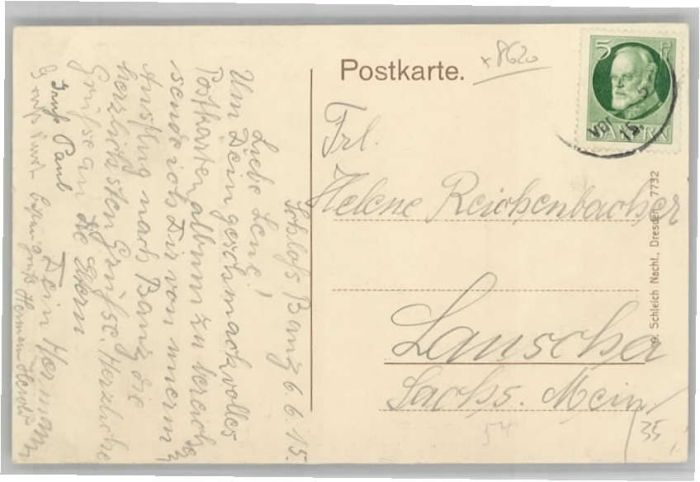 Postkarte.
x 8620
5
BAYERN
15
Frl.
Helene Reichenbacher
Lauscha
Sachs. Mein
35
54
Schleich Nachf., Dresden 7732
Schloss Banz 6.6.15.
Liebe Lene!
Um Dein geschmackvolles
Postkartenalbum zu bereich
sende ich Dir von unserm
Ausflug nach Banz die
herzlichsten Grüsse. Herzliche
Grüsse an die Eltern
Dein Hermann
Gruß Paul
Hermann